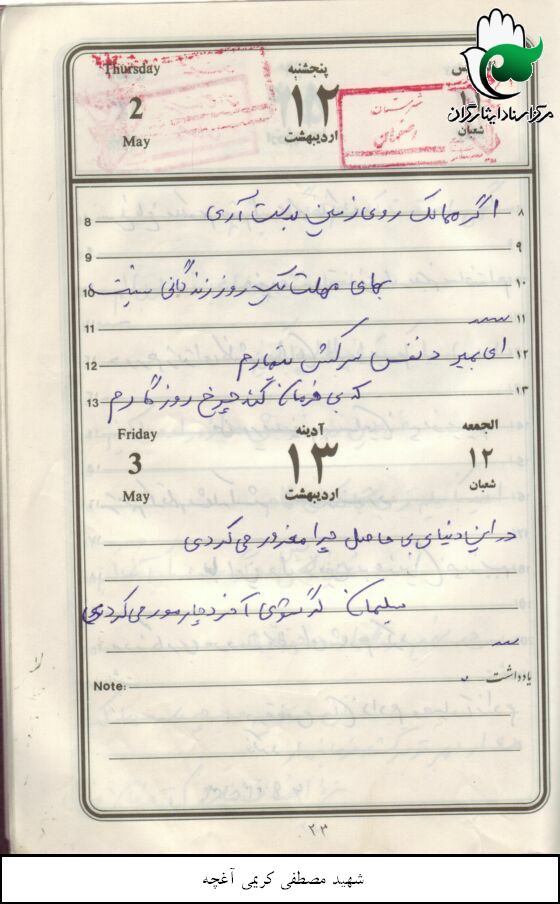 Thursday
پنجشنبه
2
۱۲
May
اردیبهشت
شعبان
مرکز اسناد ایثارگران
8 اگر ممالک روی زمین بدست آری ۸
9 ۹
10 بهای مهلت یک روز زندگانی نیست ۱۰
11 ۱۱
12 ای بمیر د نفس سرکش ۱۲
13 که بی فرمان کند چرخ روزگارم ۱۳
Friday
آدینه
الجمعه
3
۱۳
۱۲
May
اردیبهشت
شعبان
در این دنیای بی حاصل چرا مغرور می گردی
سلیمان گر شوی آخر دچار مور می گردی
Note:
یادداشت
۲۳
شهید مصطفی کریمی آغچه